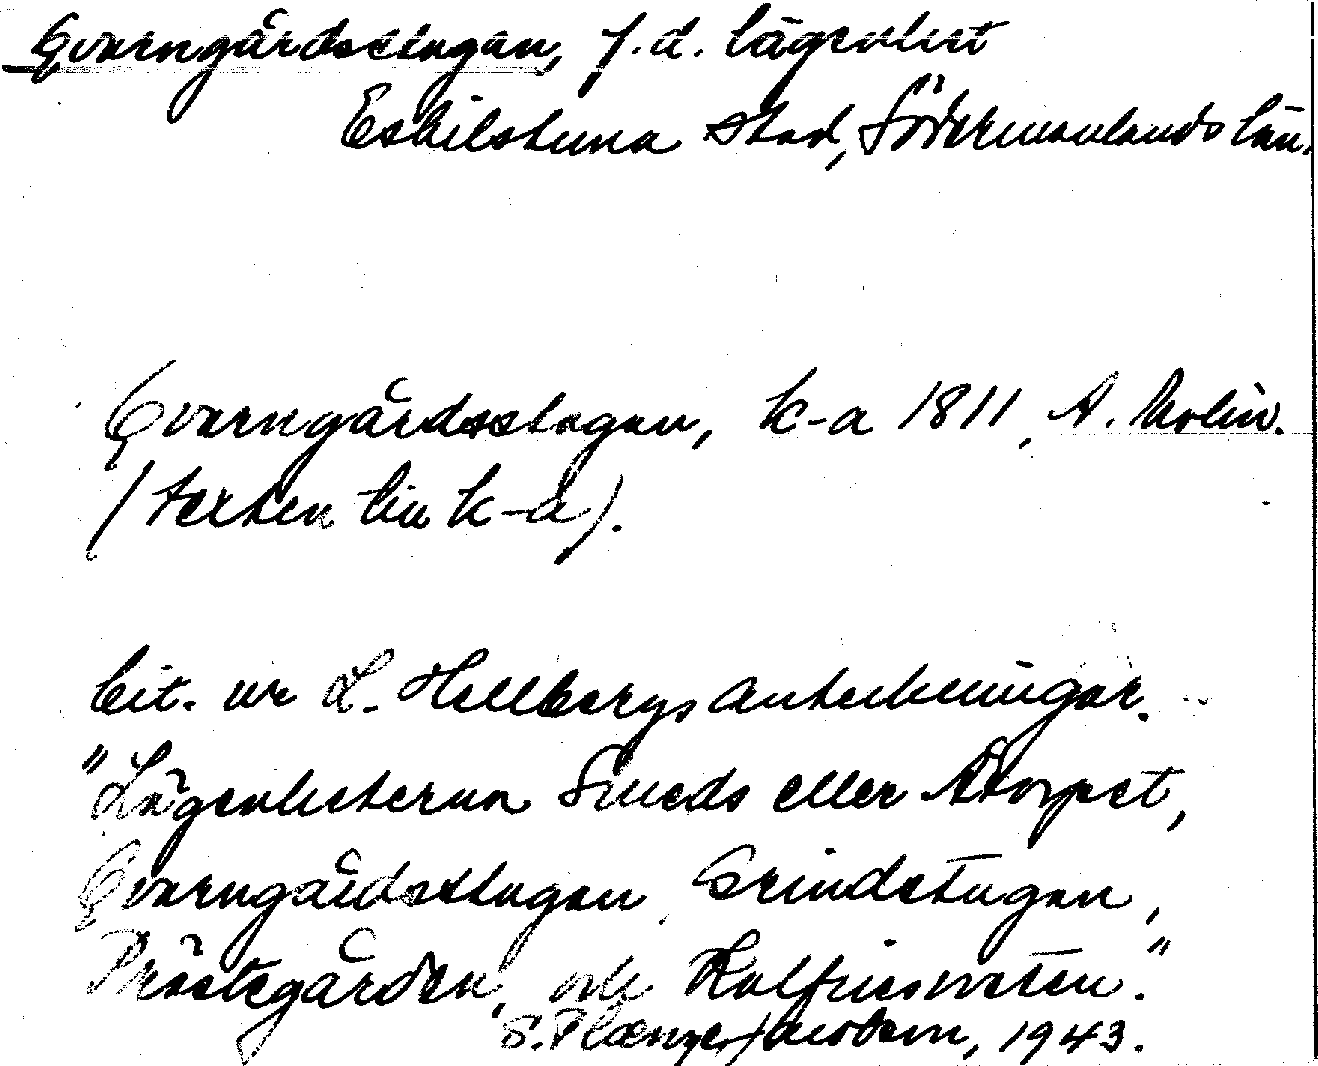 Qvarngårdsstugan, f.d. lägenhet
Eskilstuna stad, Södermanlands län.
Qvarngårdsstugan, k-a 1811, A. Molin.
(texten till k-a).
Cit. ur L. Hellbergs anteckningar.
"Lägenheterna Smeds eller Åtorpet,
Qvarngårdsstugan, Grindstugan,
Prästegården, och
S. 1943.